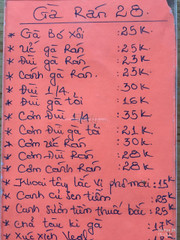 Gà Rán 28.
* Gà Bó Xôi :25K
* Ức gà Rán :25K
* Đùi gà Rán :23K
* Cánh gà Rán. :23K
* Đùi 1/4 :30K
* Đùi gà tỏi :16K
* Cơm Đùi 1/4. :35K
* Cơm Đùi gà tỏi :21K
* Cơm Ức Rán :30K
* Cơm Đùi Rán :28K
* Cơm Cánh Rán :28K
* Khoai tây lắc vị phô mai :15K
* Canh củ sen tiềm :25K
* Canh sườn tiềm thuốc bắc :25K
* Chả tàu kì gà :17K
* Xúc xích